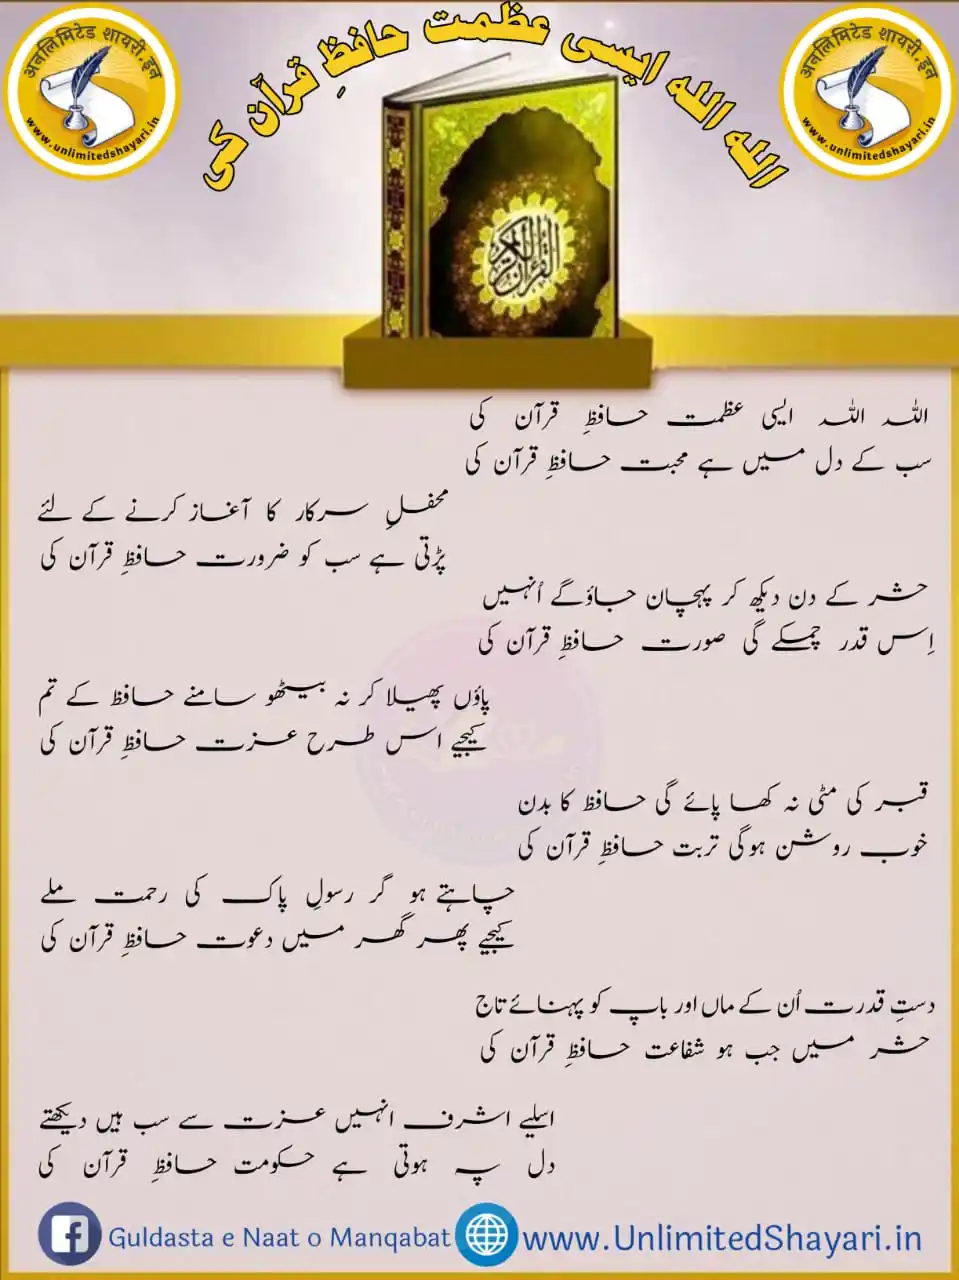 अनलिमिटेड शायरी.इन
www.unlimitedshayari.in
الله الله ایسی عظمت حافظِ قرآن کی
अनलिमिटेड शायरी.इन
www.unlimitedshayari.in
القرآن الكريم
اللہ اللہ ایسی عظمت حافظِ قرآن کی
سب کے دل میں ہے محبت حافظِ قرآن کی
محفلِ سرکار کا آغاز کرنے کے لئے
پڑتی ہے سب کو ضرورت حافظِ قرآن کی
حشر کے دن دیکھ کر پہچان جاؤگے اُنہیں
اِس قدر چمکے گی صورت حافظِ قرآن کی
پاؤں پھیلا کر نہ بیٹھو سامنے حافظ کے تم
کیجیے اس طرح عزت حافظِ قرآن کی
قبر کی مٹی نہ کھا پائے گی حافظ کا بدن
خوب روشن ہوگی تربت حافظِ قرآن کی
چاہتے ہو گر رسولِ پاک کی رحمت ملے
کیجیے پھر گھر میں دعوت حافظِ قرآن کی
دستِ قدرت اُن کے ماں اور باپ کو پہنائے تاج
حشر میں جب ہو شفاعت حافظِ قرآن کی
اسلیے اشرف انہیں عزت سے سب ہیں دیکھتے
دل پہ ہوتی ہے حکومت حافظِ قرآن کی
Guldasta e Naat o Manqabat
www.UnlimitedShayari.in